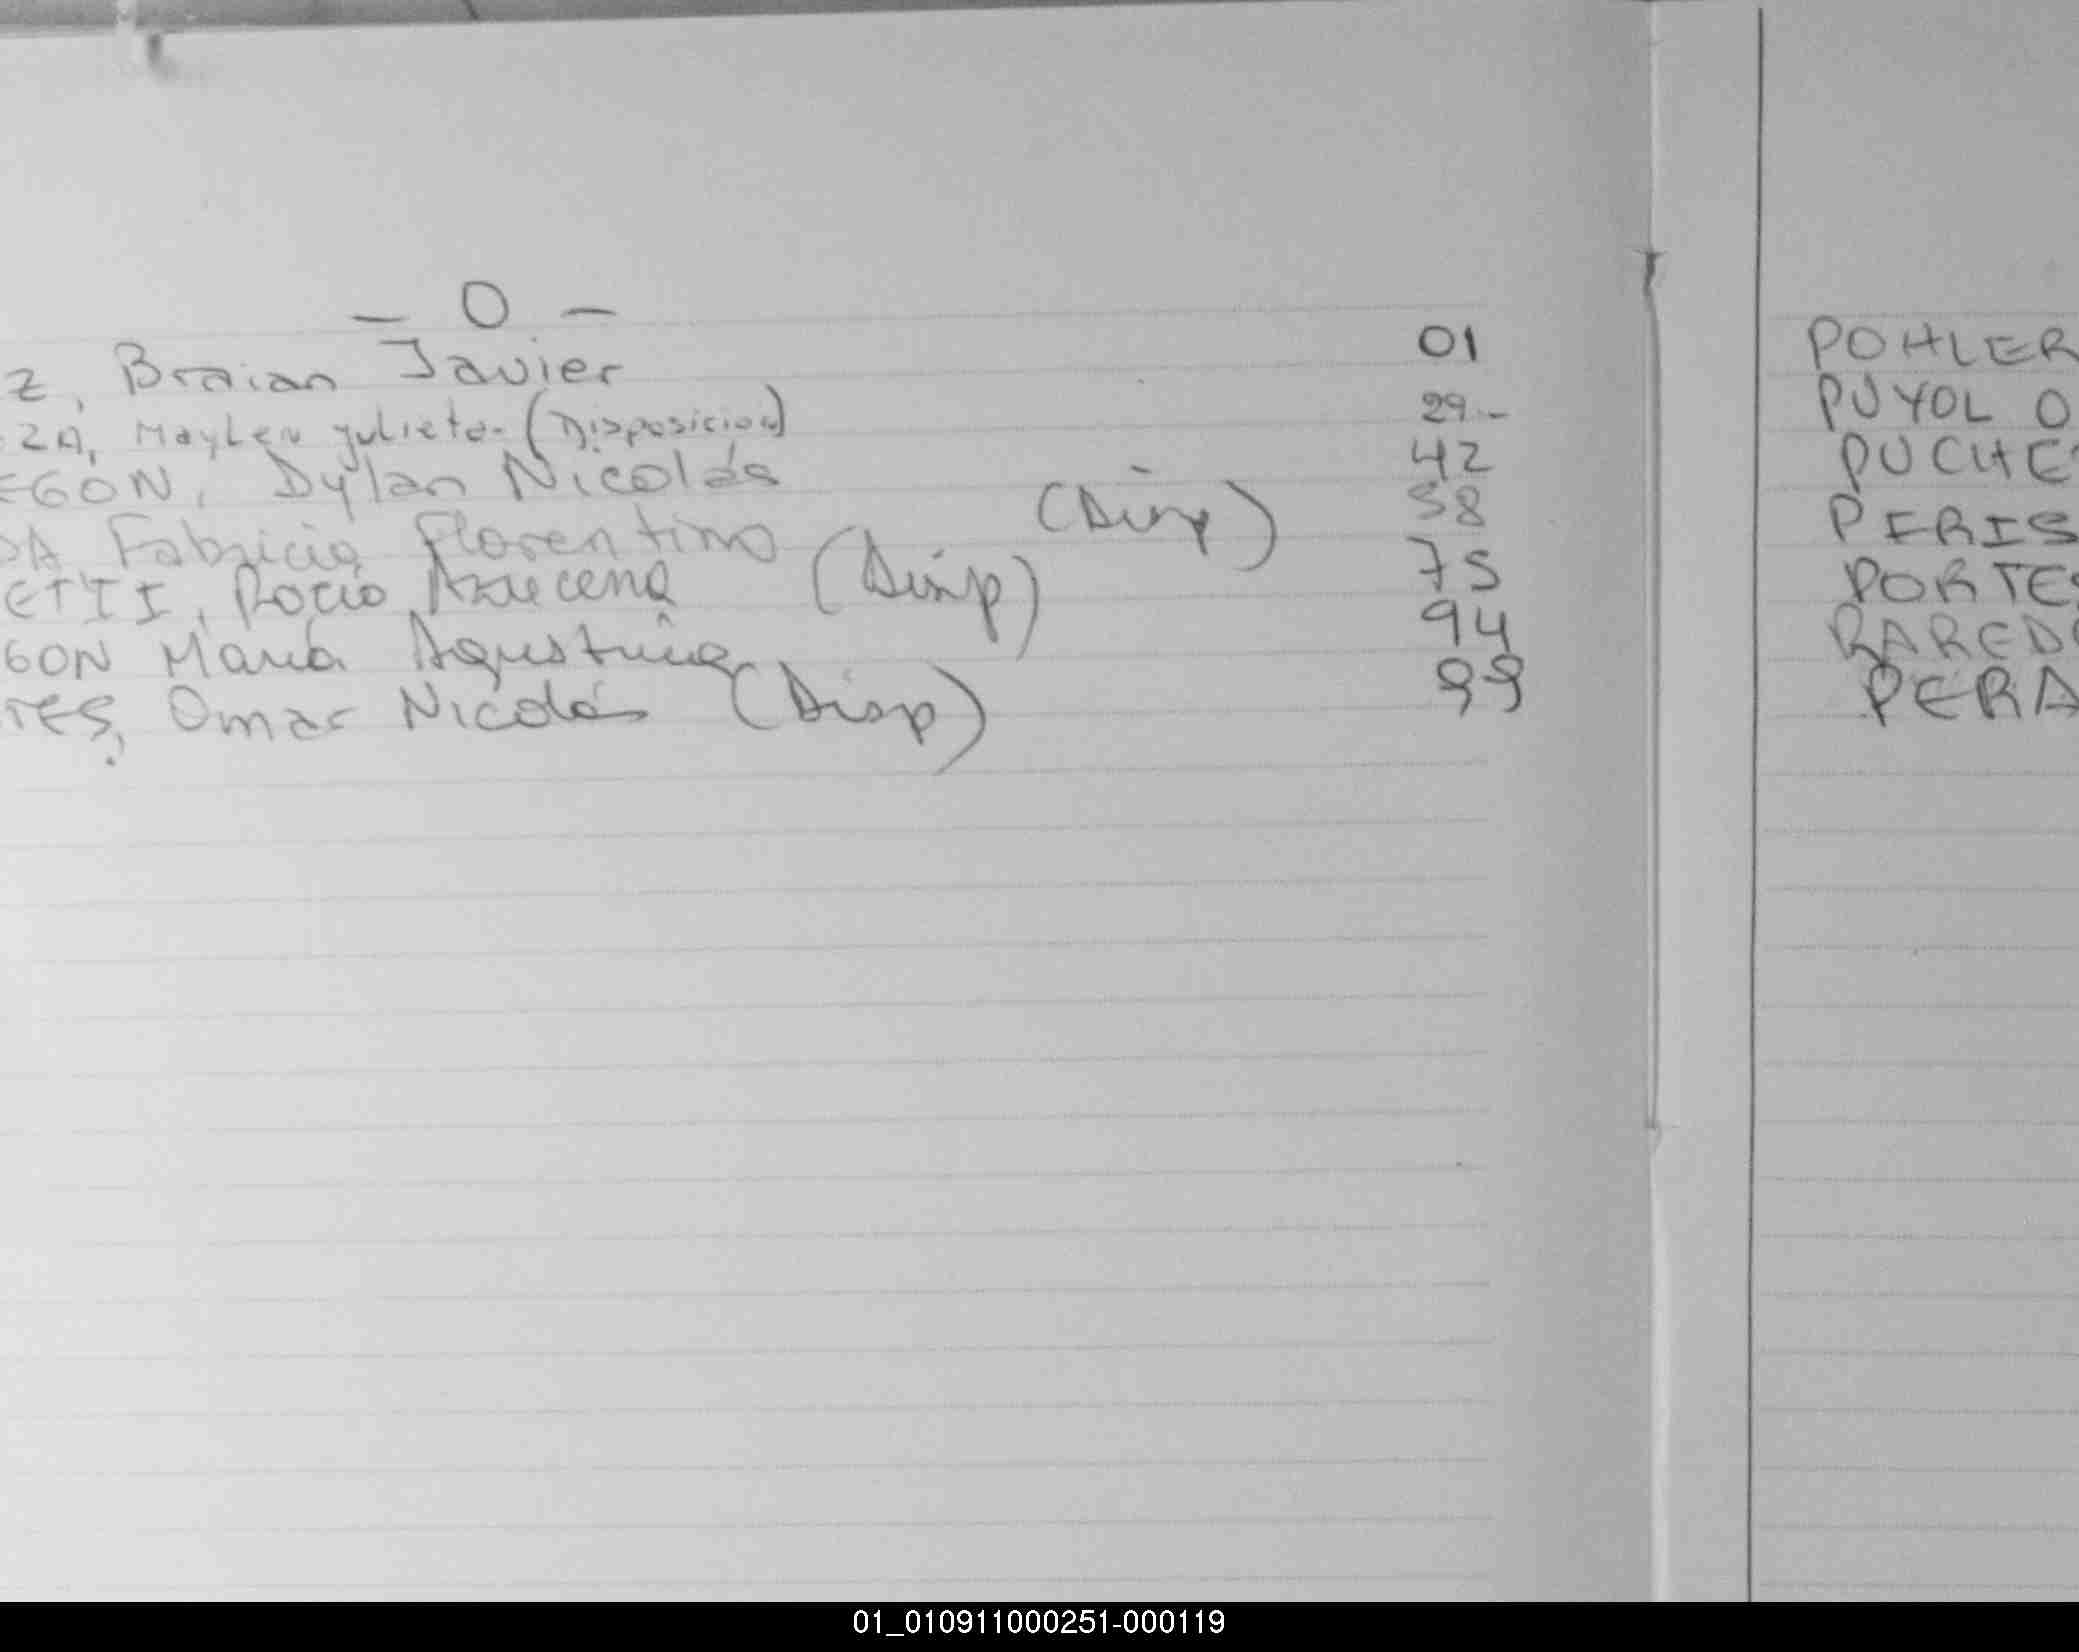 — O —
Z, Braian Javier 01
ZA, Maylen Julieta- (Disposicion) 29.-
EGON, Dylan Nicolás 42
DA Fabricia Florentino (Disp) 58
ETTI, Rocio Azucena (Disp) 75
GON María Agustina 94
TES, Omar Nicolás (Disp) 99
POHLER
PUYOL O
PUCHET
PERIS
PORTES
PAREDE
PERA
01_010911000251-000119